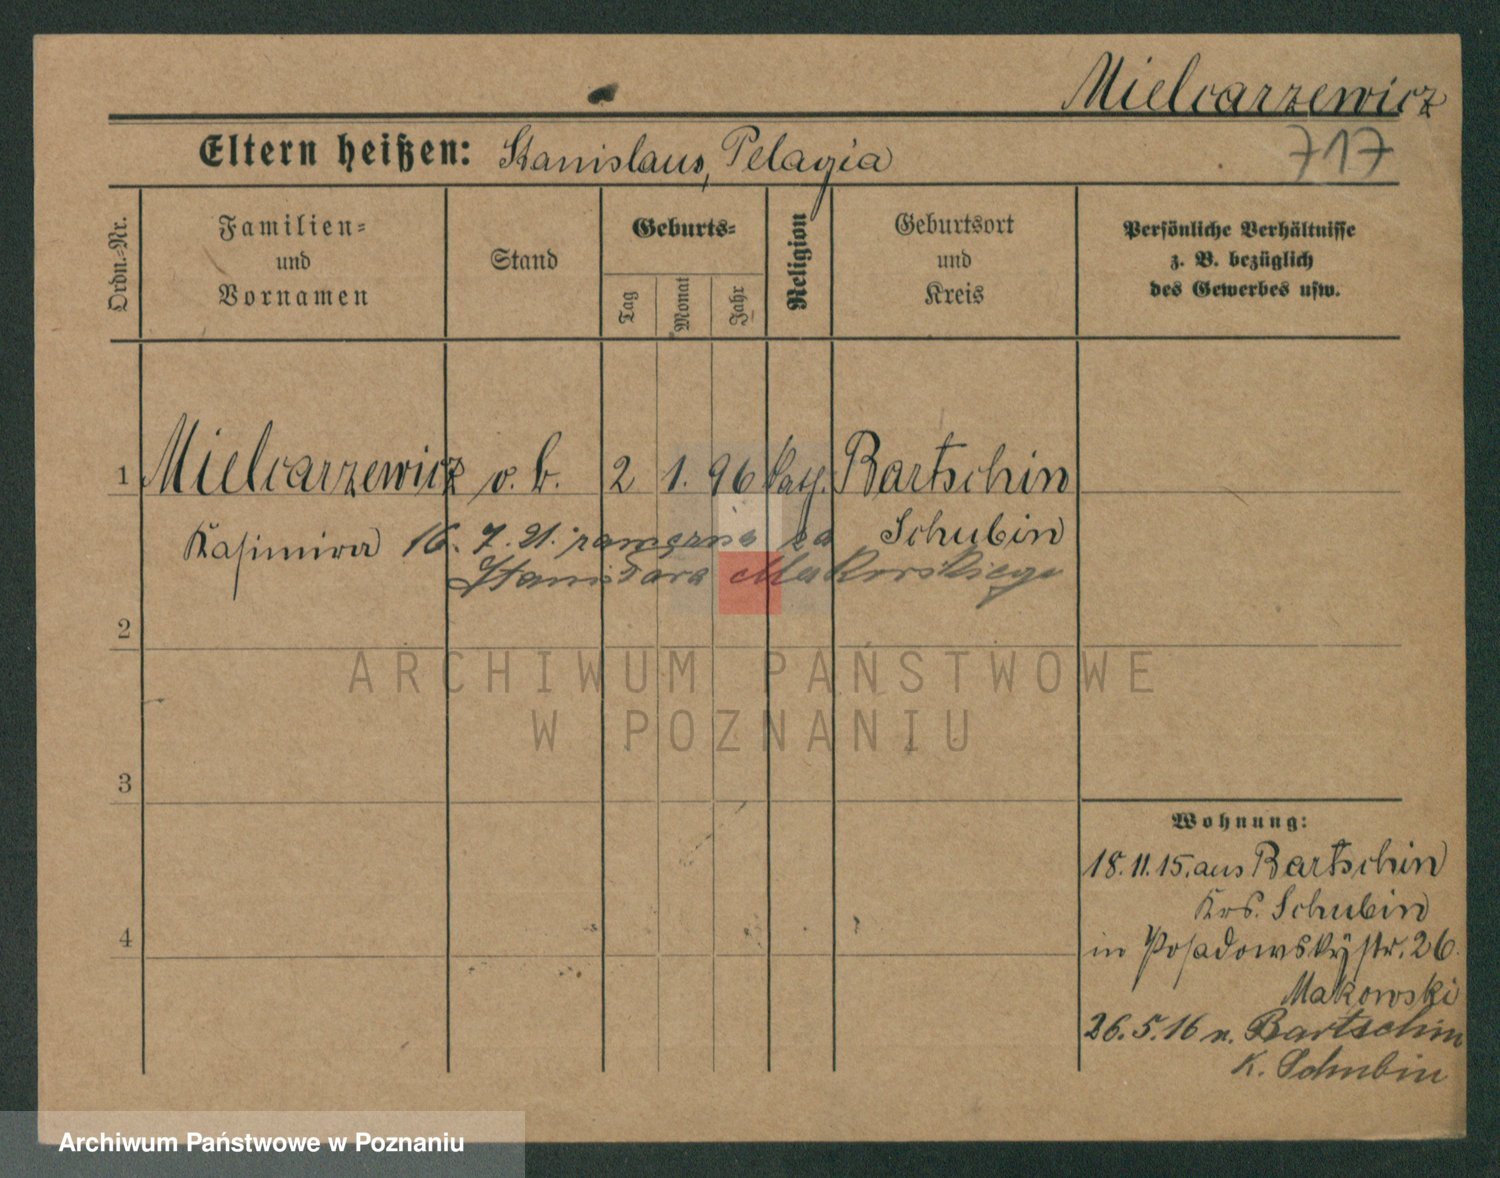 Mielcarzewicz
717
Eltern heißen: Stanislaus, Pelagia
Ordn.-Nr.
Familien-
und
Vornamen
Stand
Geburts-
Tag
Monat
Jahr
Religion
Geburtsort
und
Kreis
Persönliche Verhältnisse
z. B. bezüglich
des Gewerbes usw.
1 Mielcarzewicz o. b. 2 1. 96 kath. Bartschin
Kasimira 16. 7. 21. zamężna za Schubin
Stanisława Makowskiego
2
ARCHIWUM PAŃSTWOWE
W POZNANIU
3
4
Wohnung:
18. 11. 15. aus Bartschin
Krs. Schubin
in Posadowskystr. 26.
Makowski
26. 5. 16 n. Bartschin
K. Schubin
Archiwum Państwowe w Poznaniu